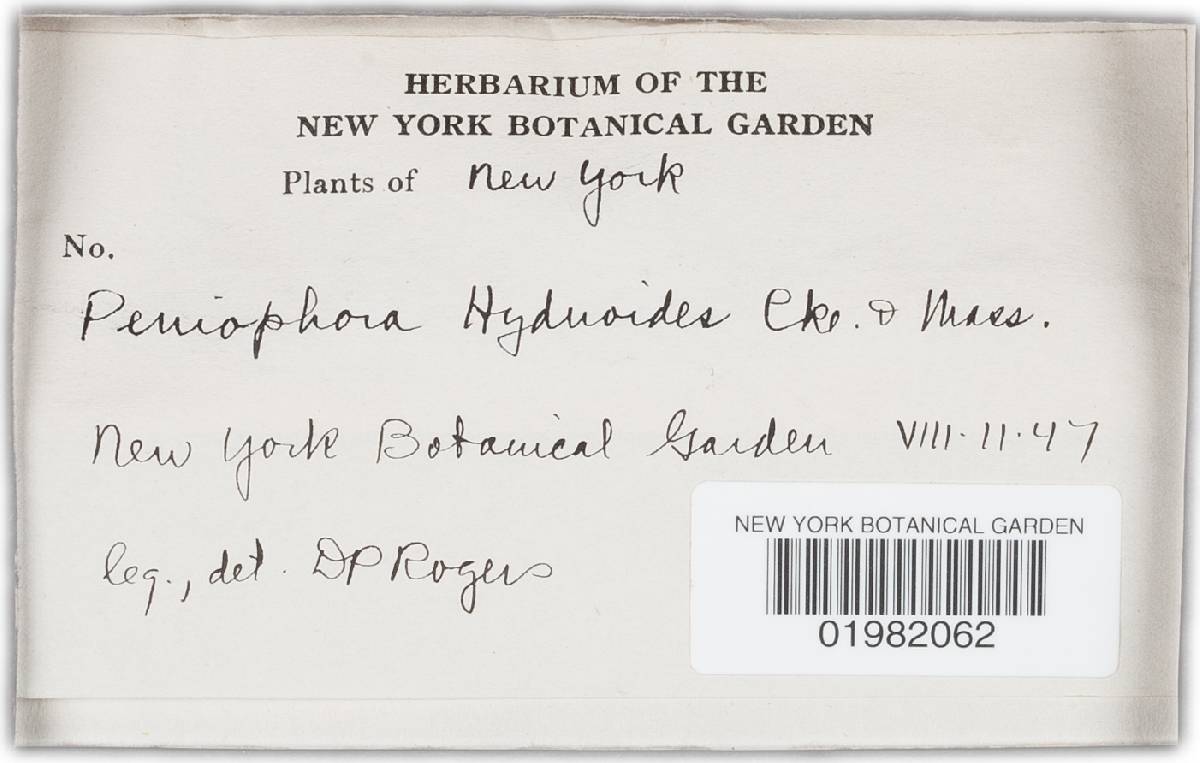 HERBARIUM OF THE
NEW YORK BOTANICAL GARDEN
Plants of New York
No.
Peniophora Hydnoides Cke. & Mass.
New York Botanical Garden VIII·11·47
leg., det. DP Rogers
NEW YORK BOTANICAL GARDEN
01982062